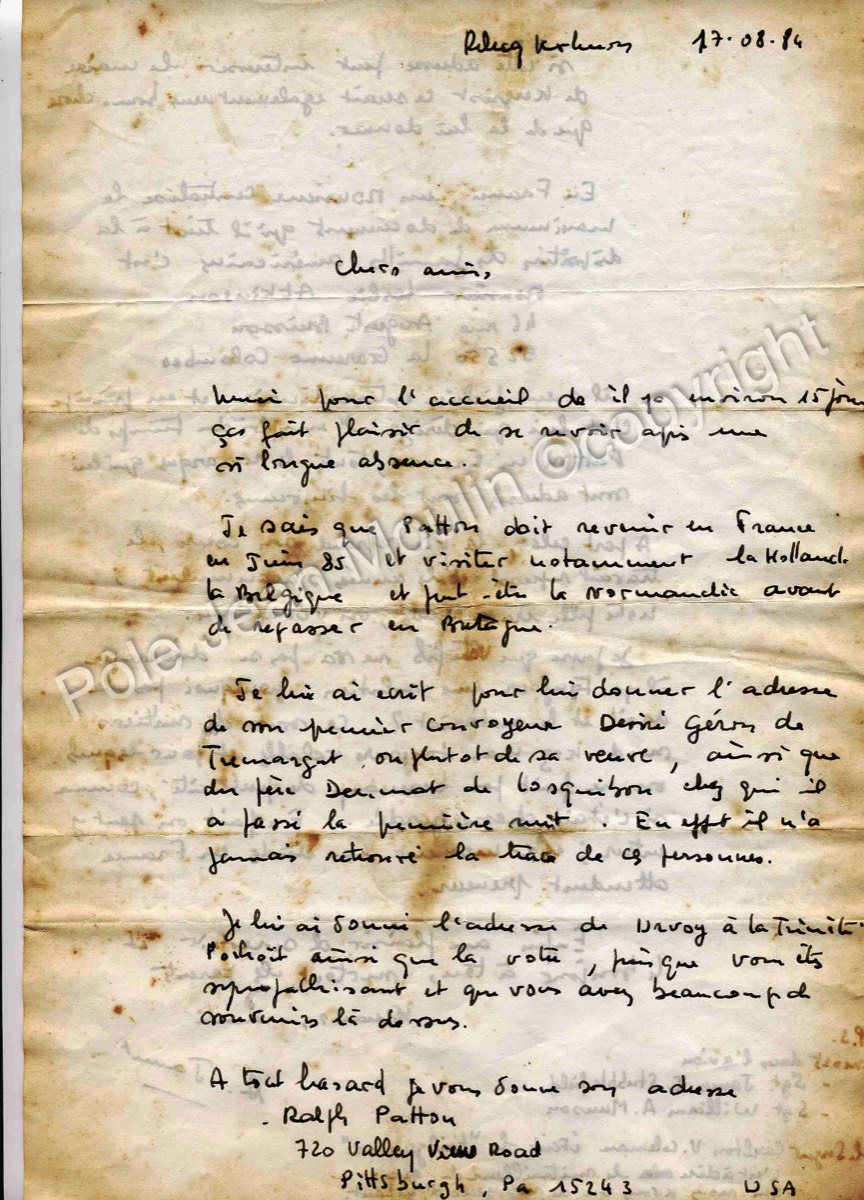 Relecq Kerhuon 17.08.84
Chers amis,
Merci pour l'accueil de il ya environ 15 jours
ças fait plaisir de se revoir après une
si longue absence.
Je sais que Patton doit revenir en France
en Juin 85 et visiter notamment la Hollande
la Belgique et peut-être la Normandie avant
de repasser en Bretagne.
Je lui ai ecrit pour lui donner l'adresse
de son premier convoyeur Désiré Géron de
Tremargat ou plutot de sa veuve, ainsi que
du père de Losquibou chez qui il
a passé la première nuit. En effet il n'a
jamais retrouvé la trace de ces personnes.
Je lui ai donné l'adresse de à la Trinité
Porhoët ainsi que la votre, puisque vous êtes
sympathisant et que vous avez beaucoup de
souvenirs là dessus.
A tout hasard je vous donne son adresse
Ralph Patton
720 Valley View Road
Pittsburgh, Pa 15243 USA
Pôle Jean Moulin ©copyright